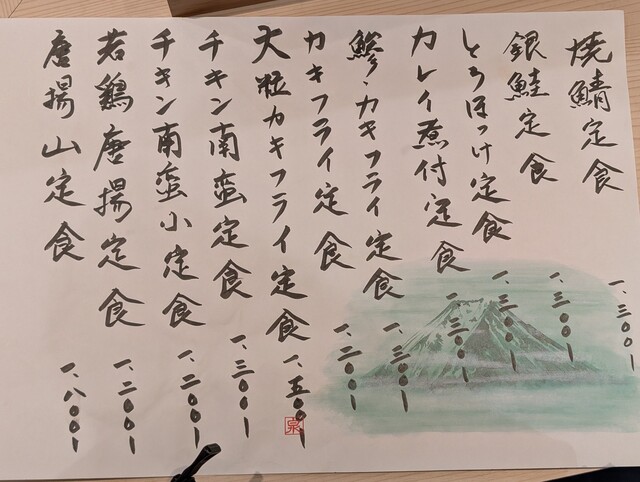 焼鯖定食 一、三〇〇
銀鮭定食 一、三〇〇
とろほっけ定食 一、三〇〇
カレイ煮付定食 一、三〇〇
鯵・カキフライ定食 一、三〇〇
カキフライ定食 一、三〇〇
大粒カキフライ定食 一、五〇〇
チキン南蛮定食 一、三〇〇
チキン南蛮小定食 一、二〇〇
若鶏唐揚定食 一、二〇〇
唐揚山定食 一、八〇〇
泉